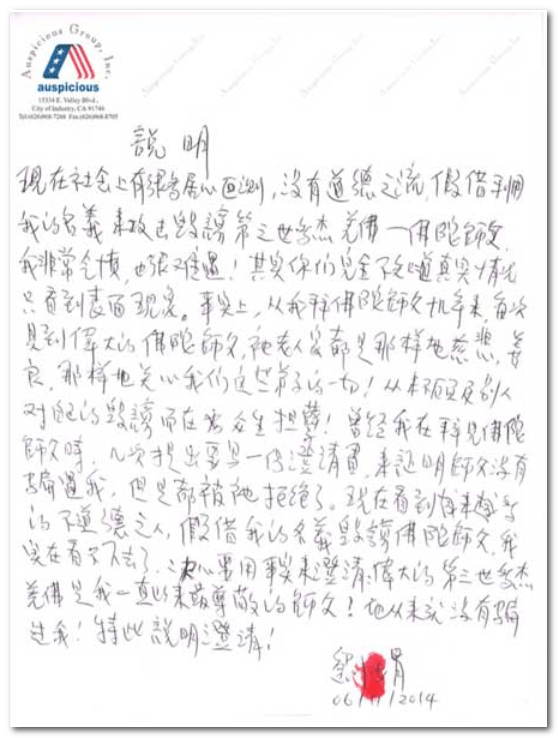 Auspicious Group, Inc.
auspicious
15334 E. Valley Blvd.,
City of Industry, CA 91746
Tel:(626)968-7268 Fax:(626)968-8705
說明
现在社会上有很多居心叵测,没有道德之流,假借利用
我的名義来攻击毁謗第三世多杰羌佛一佛陀師父,
我非常气愤,也很难過!其实你们完全不知道真实情况
只看到表面现象。事实上,从我拜佛陀師父九年来,每次
見到偉大的佛陀師父,祂老人家都是那样地慈悲,善
良,那样地关心我们这些弟子的一切!从未顾及别人
对自己的毁謗而在为众生担孽!曾经我在拜見佛陀
師父時,几次提出要写一份澄清書,来証明師父没有
騙過我,但是都被祂拒绝了。现在看到
的不道德之人,假借我的名義毁謗佛陀師父,我
实在看不下去了,决心要用事实来澄清:偉大的第三世多杰
羌佛是我一直以来最尊敬的師父!他从来就没有騙
过我!特此說明澄清!
2014